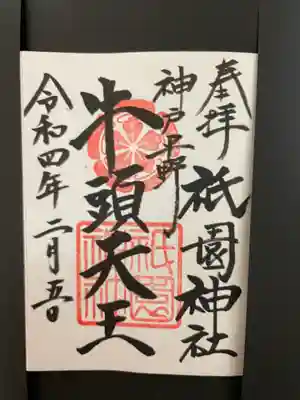 奉拝
神戸平野
祇園神社
牛頭天王
祇園神社
令和四年二月五日